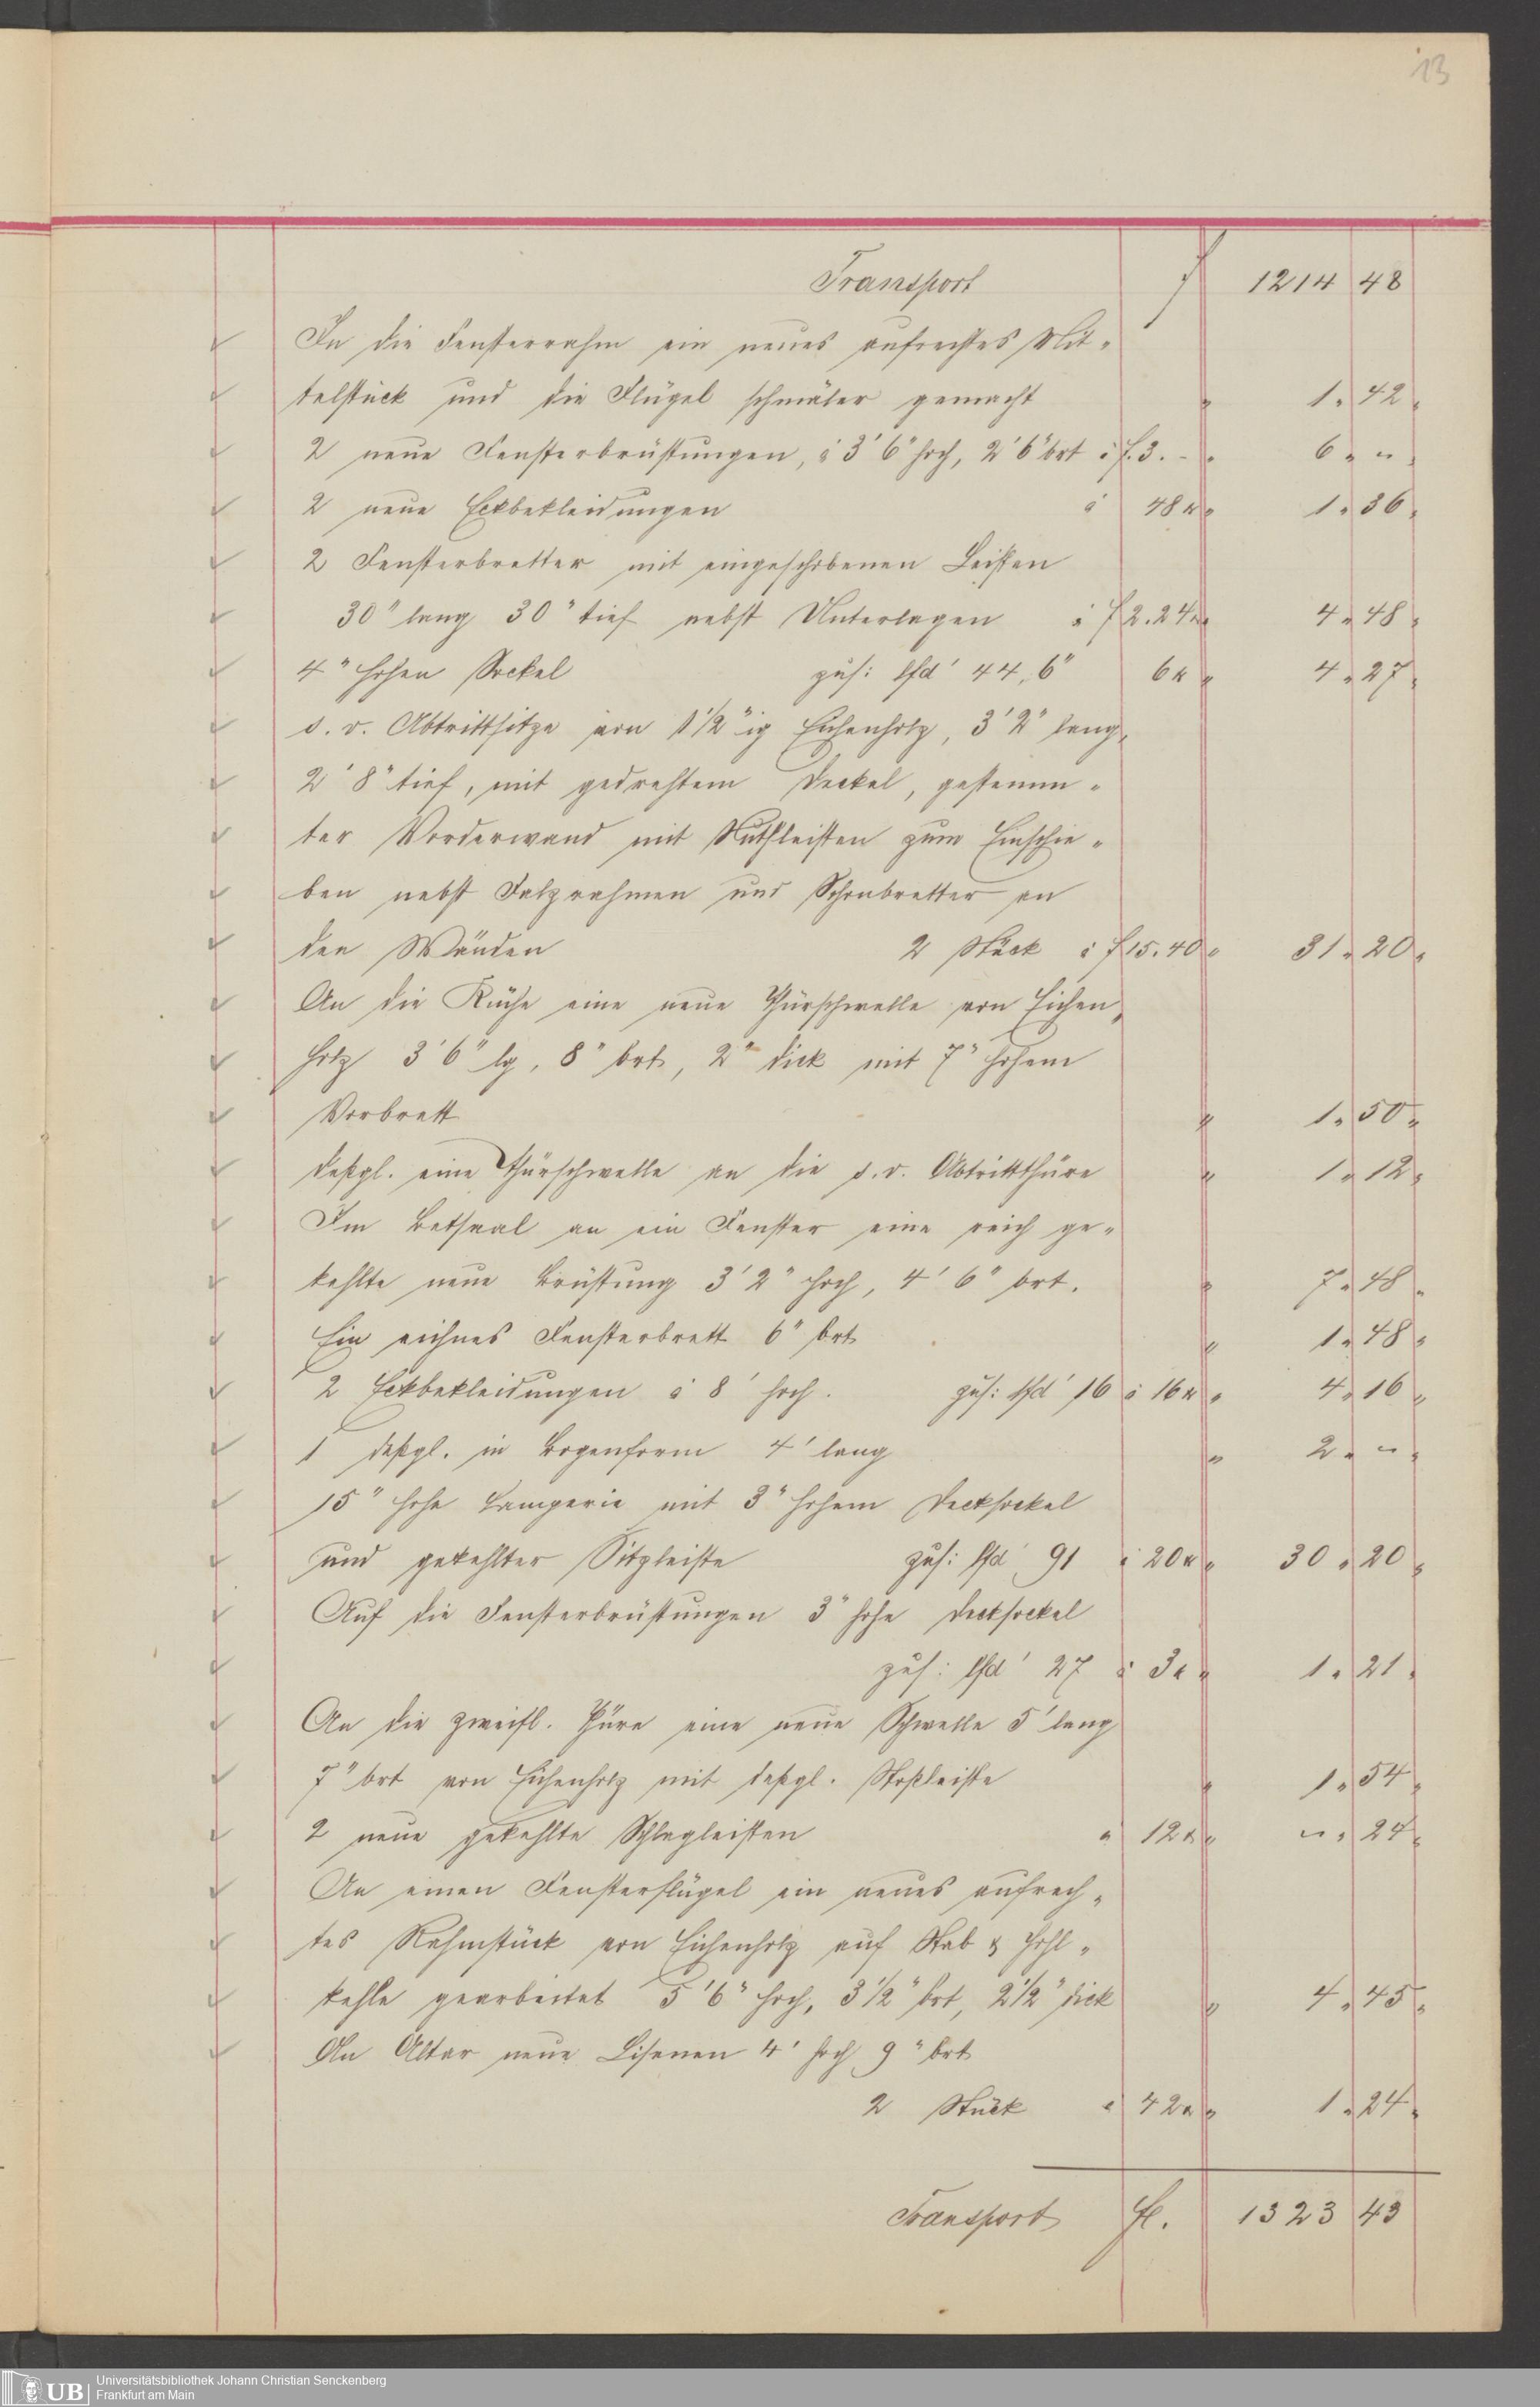 13
Transport f 1214 48
In die Fensterrahm ein neues aufrechtes Mit-
telstück und die Flügel schmäler gemacht " 1 " 42 "
2 neue Fensterbrüstungen, à 3' 6" hoch, 2' 6" brt à f. 3. - " 6 " " "
2 neue Eckbekleidungen à 48 x " 1 " 36 "
2 Fensterbretter mit eingeschobenen Leisten
30" lang 30" tief nebst Unterlagen à f 2. 24 x " 4 " 48 "
4" hohen Sockel zus: lfd' 44, 6" 6 x " 4 " 27 "
s. v. Abtrittsitze von 1 1/2" ig Eichenholz, 3' 2" lang,
2' 8" tief, mit gedrehtem Deckel, gestemm-
ter Vorderwand mit Nuthleisten zum Einschie-
ben nebst Falzrahmen und Schonbretter an
den Wänden 2 Stück à f 15. 40 " 31 " 20 "
An die Küche eine neue Thürschwelle von Eichen-
holz 3' 6" lg, 8" brt, 2" dick mit 7" hohem
Vorbrett " 1 " 50 "
deßgl. eine Thürschwelle an die s. v. Abtrittthüre " 1 " 12 "
Im Betsaal an ein Fenster eine reich ge-
kehlte neue Brüstung 3' 2" hoch, 4' 6" brt. " 7 " 48 "
Ein eichnes Fensterbrett 6" brt " 1 " 48 "
2 Eckbekleidungen à 8' hoch. zus: lfd' 16 à 16 x " 4 " 16 "
1 deßgl. in Bogenform 4' lang " 2 " " "
15" hohe Lamperie mit 3" hohem Decksockel
und gekehlter Sitzleiste zus: lfd' 91 à 20 x " 30 " 20 "
Auf die Fensterbrüstungen 3" hohe Decksockel
zus: lfd' 27 à 3 x " 1 " 21 "
An die zweifl. Thüre eine neue Schwelle 5' lang
7" brt von Eichenholz mit deßgl. Stoßleiste " 1 " 54 "
2 neue gekehlte Schlagleisten à 12 x " " " 24 "
An einen Fensterflügel ein neues aufrech-
tes Rahmstück von Eichenholz auf Stab & Hohl-
kehle gearbeitet 5' 6" hoch, 3 1/2" brt, 2 1/2" dick " 4 " 45 "
An Altar neue Lisenen 4' hoch 9" brt
2 Stück à 42 x " 1 " 24 "
Transport fl. 1323 43
UB Universitätsbibliothek Johann Christian Senckenberg
Frankfurt am Main